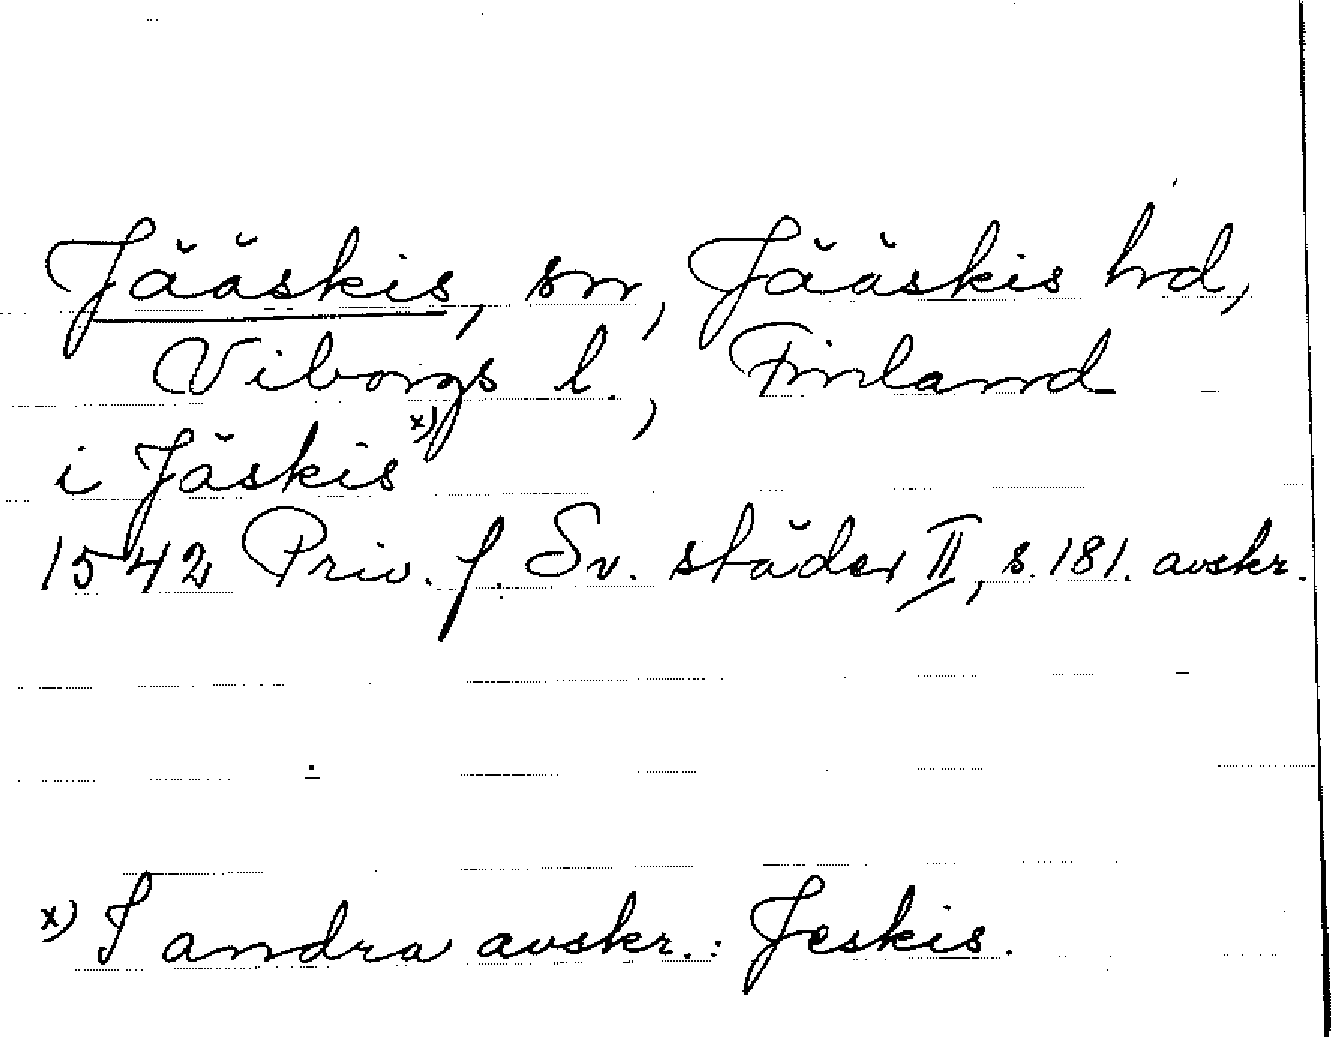 Jääskis, sn, Jääskis hd,
Viborgs l., Finland
i Jäskis x)
1542 Priv. f. Sv. städer II, s. 181. avskr.
x) I andra avskr.: Jeskis.